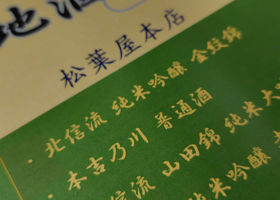 地酒
松葉屋本店
・北信流 純米吟醸 金紋錦
・本吉乃川 普通酒
信流 山田錦 純米
純米吟醸